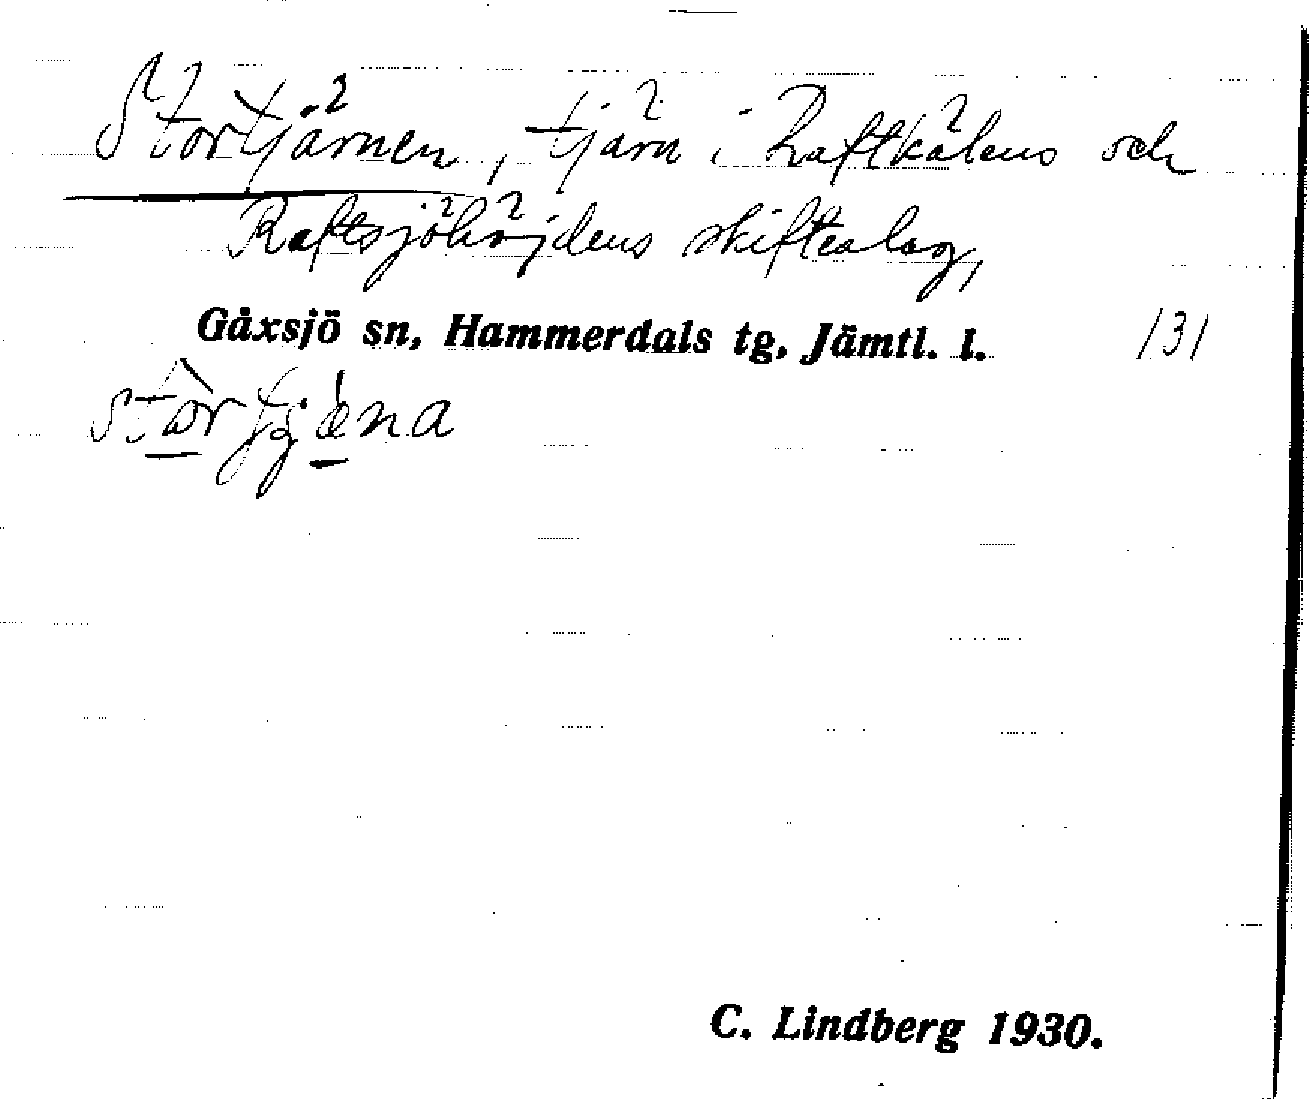 Stortjärnen, tjärn i Raftkälens och
Raftsjöhöjdens skifteslag,
Gåxsjö sn, Hammerdals tg, Jämtl. l. 131
C. Lindberg 1930.